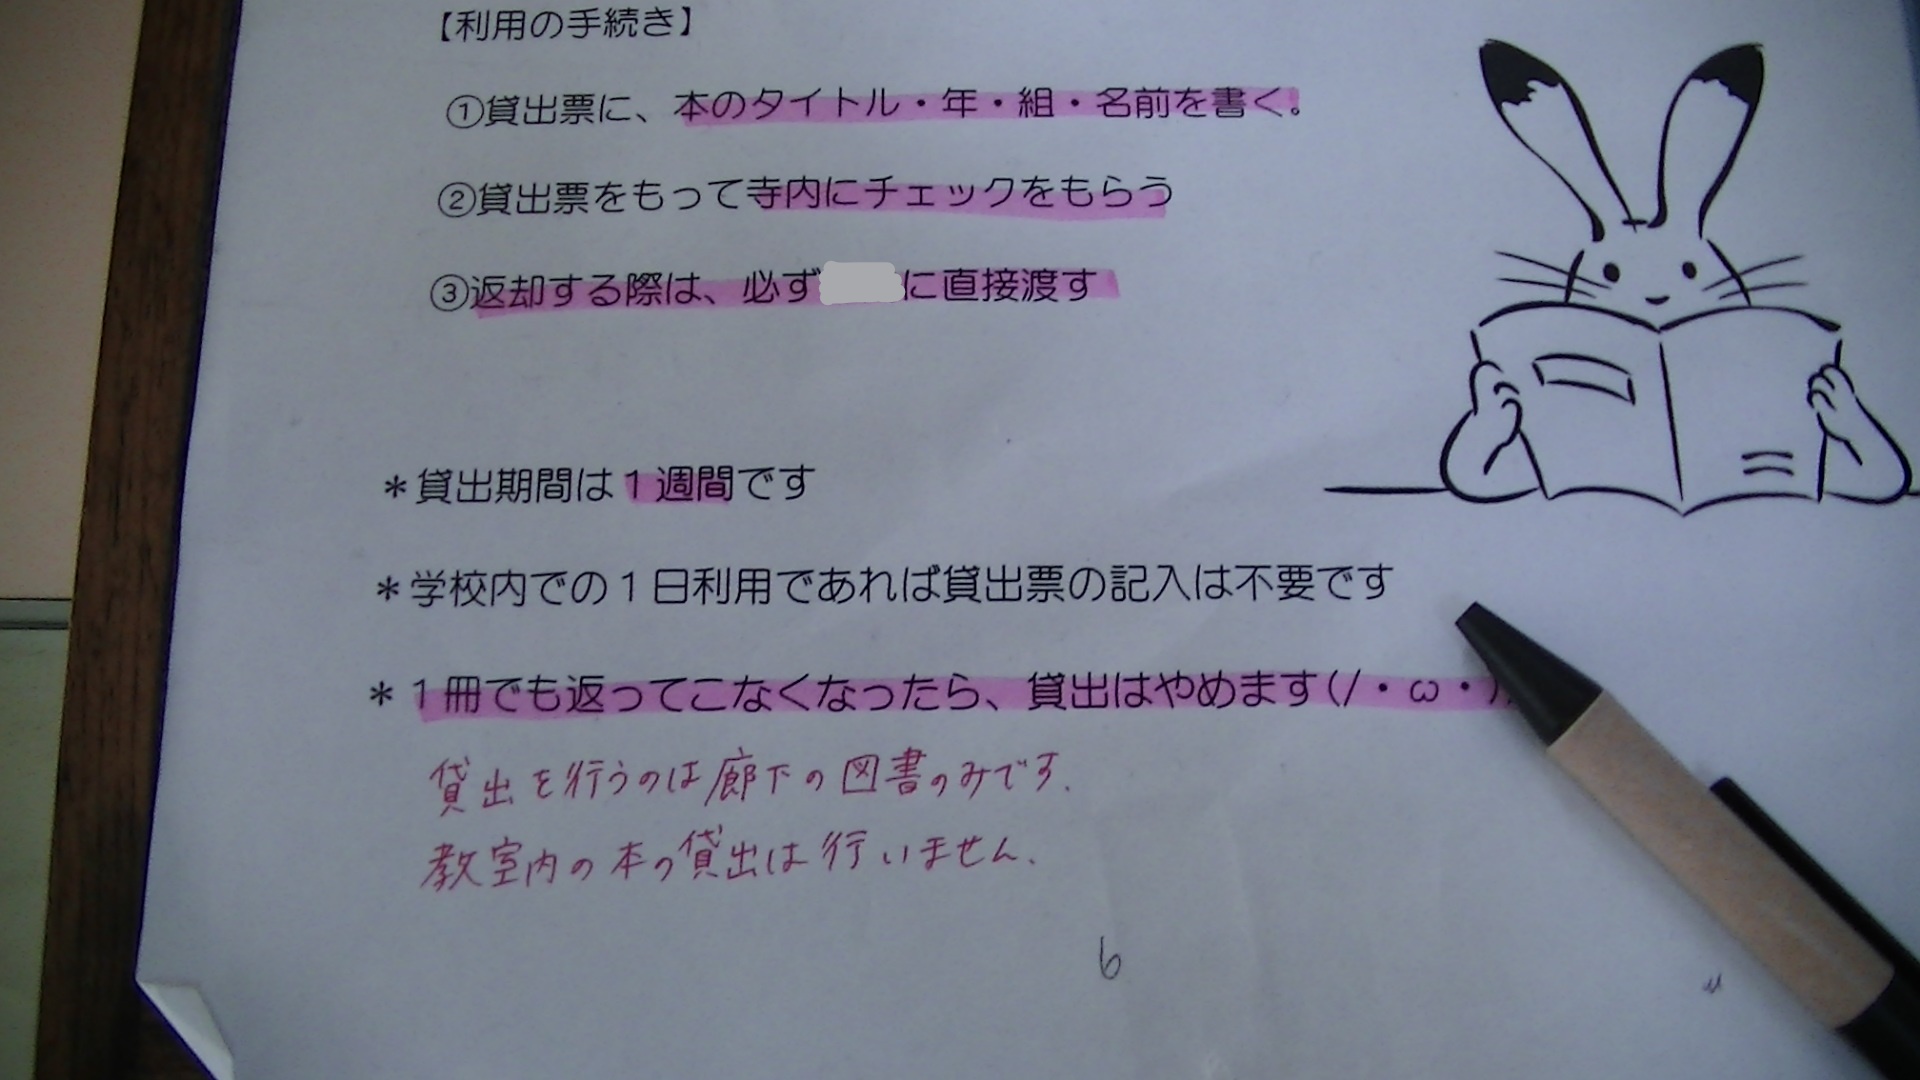 【利用の手続き】
①貸出票に、本のタイトル・年・組・名前を書く。
②貸出票をもって寺内にチェックをもらう
③返却する際は、必ず に直接渡す
＊貸出期間は１週間です
＊学校内での１日利用であれば貸出票の記入は不要です
＊１冊でも返ってこなくなったら、貸出はやめます(/・ω・)
貸出を行うのは廊下の図書のみです.
教室内の本の貸出は行いません.
6